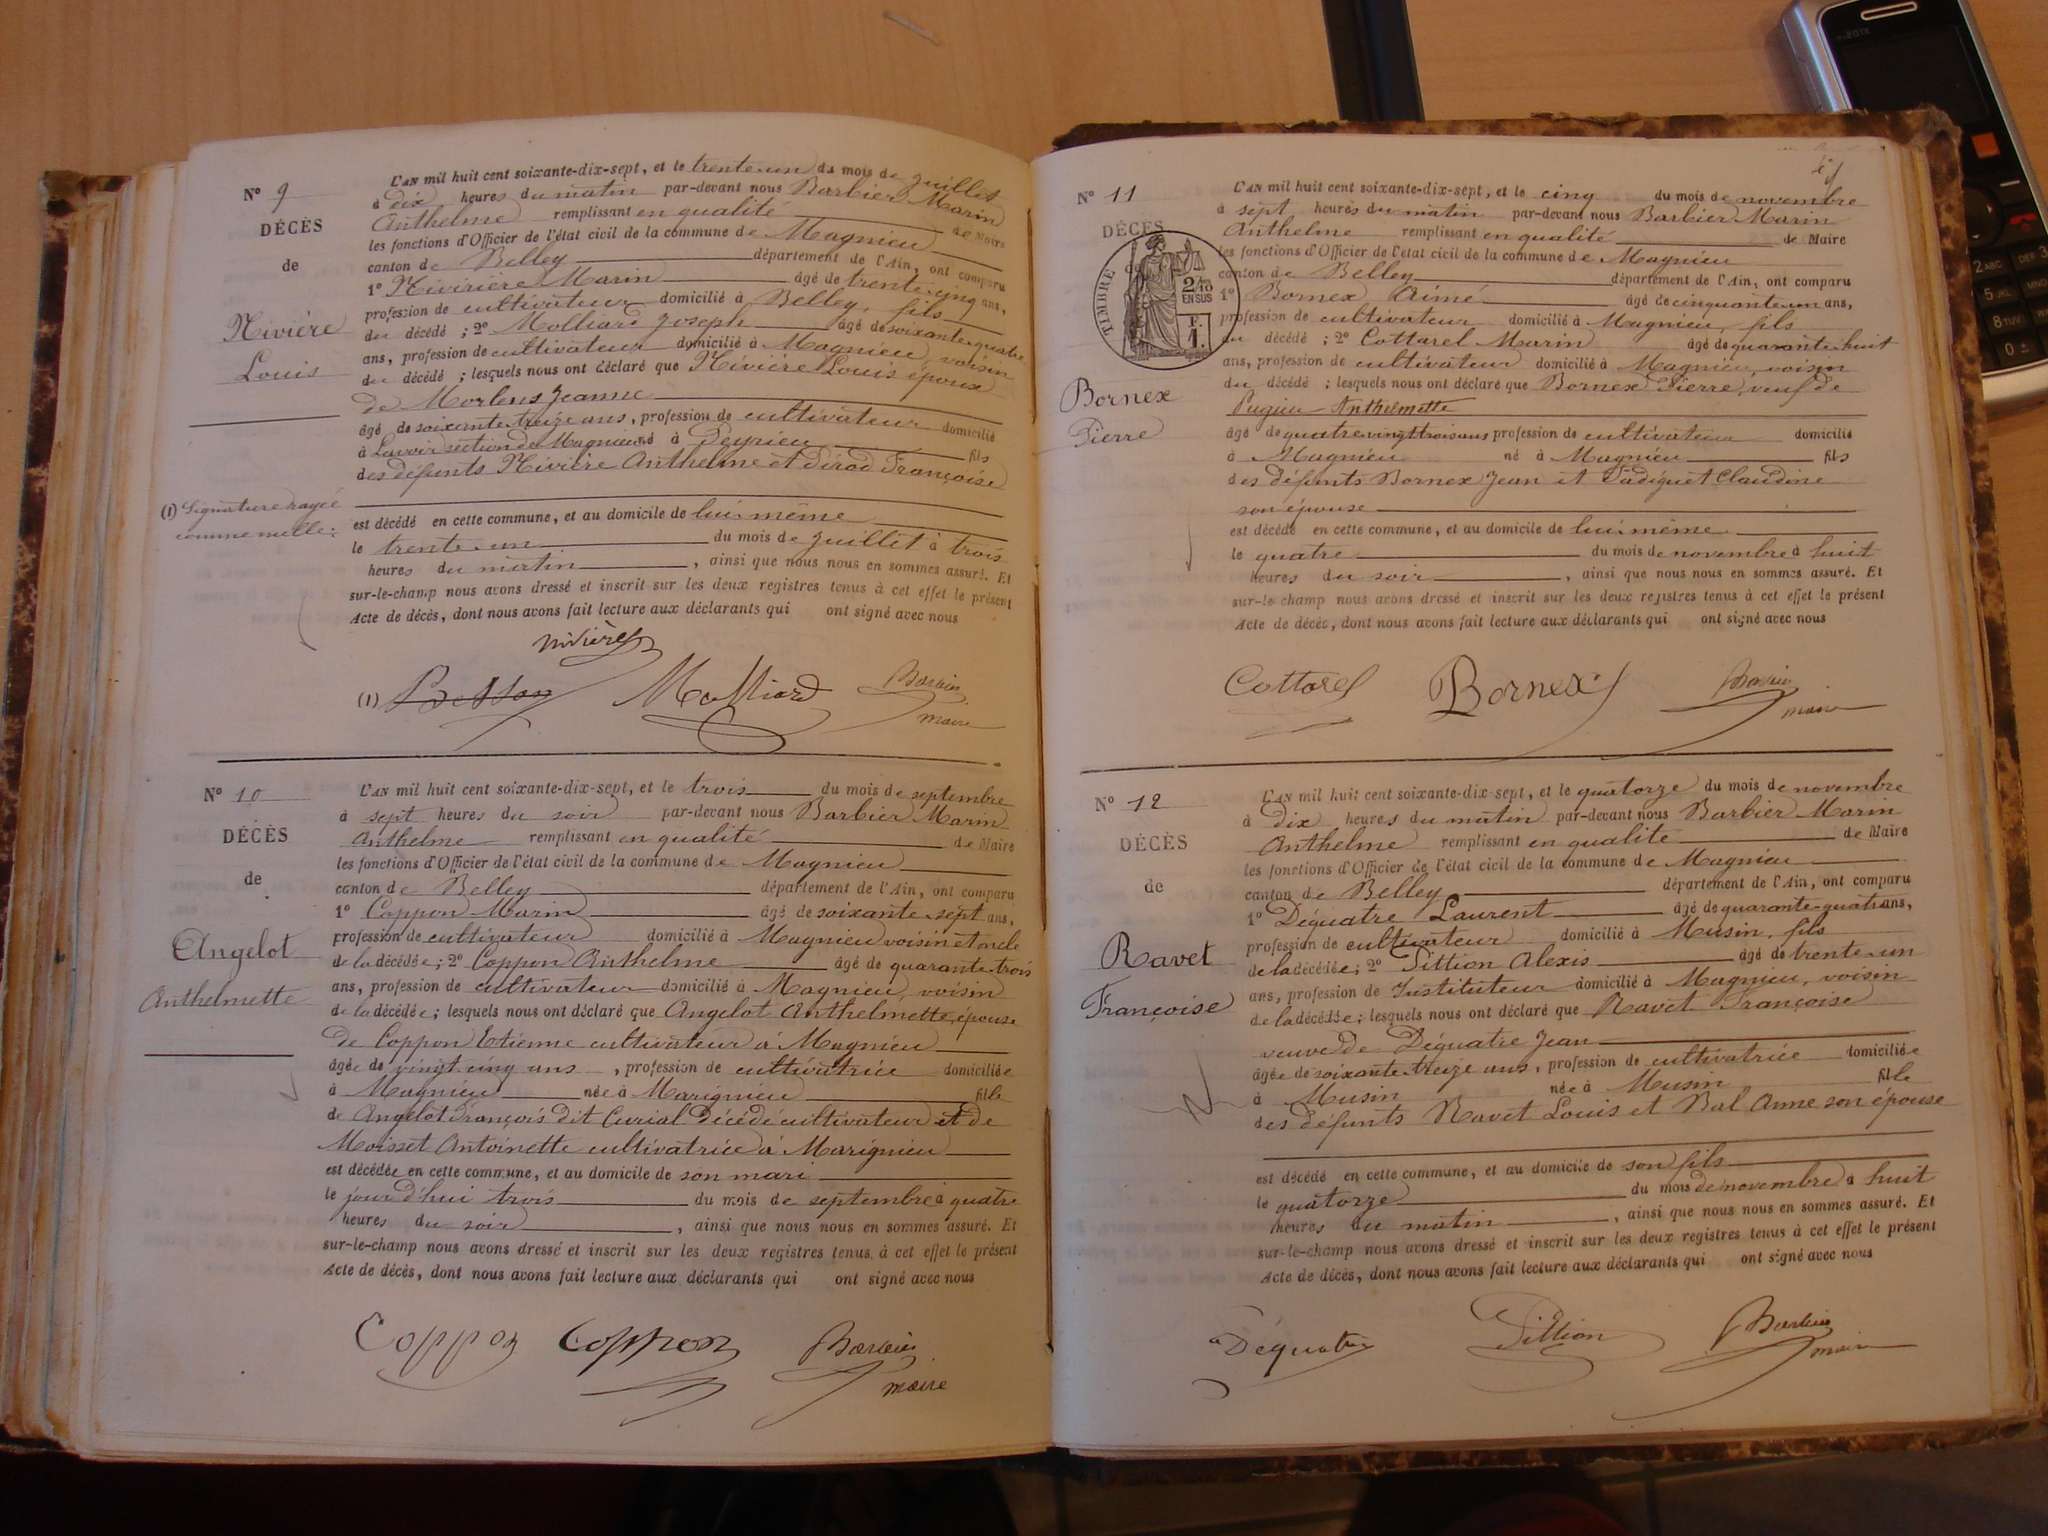 N° 9
DÉCÈS
de
Nivière
Louis
(1) Signature rayée
comme nulle.
L'AN mil huit cent soixante-dix-sept, et le trente-un du mois de juillet
à dix heures du matin par-devant nous Barbier Marin
Anthelme remplissant en qualité de Maire
les fonctions d'Officier de l'état civil de la commune de Magnieu
canton de Belley département de l'Ain, ont comparu
1° Nivière Marin âgé de trente-cinq ans,
profession de cultivateur domicilié à Belley, fils
du décédé ; 2° Molliard Joseph âgé de soixante-quatre
ans, profession de cultivateur domicilié à Magnieu, voisin
du décédé ; lesquels nous ont déclaré que Nivière Louis époux
de Morlens Jeanne
âgé de soixante-treize ans, profession de cultivateur domicilié
à Lavoir section de Magnieu né à Peyrieu fils
des défunts Nivière Anthelme et Pirod Françoise
est décédé en cette commune, et au domicile de lui-même
le trente-un du mois de juillet à trois
heures du matin, ainsi que nous nous en sommes assuré. Et
sur-le-champ nous avons dressé et inscrit sur les deux registres tenus à cet effet le présent
Acte de décès, dont nous avons fait lecture aux déclarants qui ont signé avec nous
Nivière
(1) Besson Molliard Barbier
maire
N° 10
DÉCÈS
de
Angelot
Anthelmette
L'AN mil huit cent soixante-dix-sept, et le trois du mois de septembre
à sept heures du soir par-devant nous Barbier Marin
Anthelme remplissant en qualité de Maire
les fonctions d'Officier de l'état civil de la commune de Magnieu
canton de Belley département de l'Ain, ont comparu
1° Coppon Marin âgé de soixante-sept ans,
profession de cultivateur domicilié à Magnieu voisin et oncle
de la décédée ; 2° Coppon Anthelme âgé de quarante-trois
ans, profession de cultivateur domicilié à Magnieu, voisin
de la décédée ; lesquels nous ont déclaré que Angelot Anthelmette, épouse
de Coppon Etienne cultivateur à Magnieu
âgée de vingt-cinq ans, profession de cultivatrice domiciliée
à Magnieu née à Marignieu fille
de Angelot François dit Curial décédé cultivateur et de
Moisset Antoinette cultivatrice à Marignieu
est décédée en cette commune, et au domicile de son mari
le jour d'hui trois du mois de septembre à quatre
heures du soir, ainsi que nous nous en sommes assuré. Et
sur-le-champ nous avons dressé et inscrit sur les deux registres tenus à cet effet le présent
Acte de décès, dont nous avons fait lecture aux déclarants qui ont signé avec nous
Coppon Coppon Barbier
maire
N° 11
DÉCÈS
de
TIMBRE
2/10
EN SUS
F.
1.
Bornex
Pierre
L'AN mil huit cent soixante-dix-sept, et le cinq du mois de novembre
à sept heures du matin par-devant nous Barbier Marin
Anthelme remplissant en qualité de Maire
les fonctions d'Officier de l'état civil de la commune de Magnieu
canton de Belley département de l'Ain, ont comparu
1° Bornex Aimé âgé de cinquante-un ans,
profession de cultivateur domicilié à Magnieu, fils
du décédé ; 2° Cottarel Marin âgé de quarante-huit
ans, profession de cultivateur domicilié à Magnieu, voisin
du décédé ; lesquels nous ont déclaré que Bornex Pierre, veuf de
Pugieu Anthelmette
âgé de quatre-vingt-trois ans profession de cultivateur domicilié
à Magnieu né à Magnieu fils
des défunts Bornex Jean et Padiguet Claudine
son épouse
est décédé en cette commune, et au domicile de lui-même
le quatre du mois de novembre à huit
heures du soir, ainsi que nous nous en sommes assuré. Et
sur-le-champ nous avons dressé et inscrit sur les deux registres tenus à cet effet le présent
Acte de décès, dont nous avons fait lecture aux déclarants qui ont signé avec nous
Cottarel Bornex Barbier
maire
N° 12
DÉCÈS
de
Ravet
Françoise
L'AN mil huit cent soixante-dix-sept, et le quatorze du mois de novembre
à dix heures du matin par-devant nous Barbier Marin
Anthelme remplissant en qualité de Maire
les fonctions d'Officier de l'état civil de la commune de Magnieu
canton de Belley département de l'Ain, ont comparu
1° Déquatre Laurent âgé de quarante-quatre ans,
profession de cultivateur domicilié à Musin, fils
de la décédée ; 2° Pittion Alexis âgé de trente-un
ans, profession de Instituteur domicilié à Magnieu, voisin
de la décédée ; lesquels nous ont déclaré que Ravet Françoise
veuve de Déquatre Jean
âgée de soixante-treize ans, profession de cultivatrice domiciliée
à Musin née à Musin fille
des défunts Ravet Louis et Bal Anne son épouse
est décédé en cette commune, et au domicile de son fils
le quatorze du mois de novembre à huit
heures du matin, ainsi que nous nous en sommes assuré. Et
sur-le-champ nous avons dressé et inscrit sur les deux registres tenus à cet effet le présent
Acte de décès, dont nous avons fait lecture aux déclarants qui ont signé avec nous
Déquatre Pittion Barbier
maire